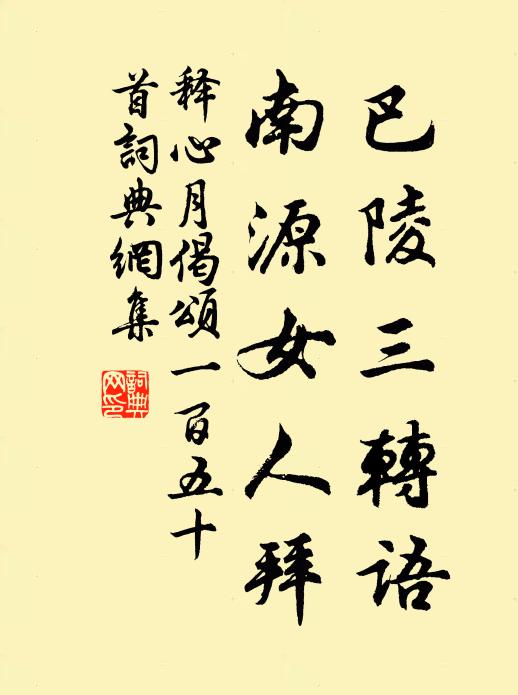 巴陵三轉語
南源女人拜
释心月偈頌一百五十
首詞典網集
詞典
网印